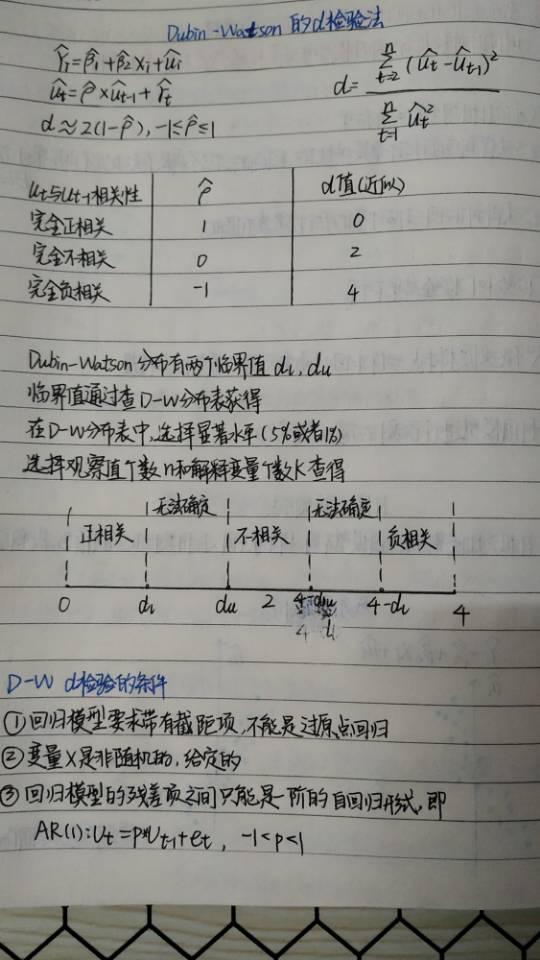 Dubin-Watson的d检验法
Ŷi=β̂1+β̂2Xi+ûi
ût=ρ̂×ût-1+r̂t
d≈2(1-ρ̂),-1≤ρ̂≤1
d= Σ(t=2→n)(ût-ût-1)² / Σ(t=1→n)ût²
ut与ut-1相关性 ρ̂ d值(近似)
完全正相关 1 0
完全不相关 0 2
完全负相关 -1 4
Dubin-Watson分布有两个临界值dL,du
临界值通过查D-W分布表获得
在D-W分布表中,选择显著水平(5%或者1%)
选择观察值个数n和解释变量个数K查得
无法确定 无法确定
正相关 不相关 负相关
0 dL du 2 4-du 4-dL 4
D-W d检验的条件
①回归模型要求带有截距项,不能是过原点回归
②变量X是非随机的,给定的
③回归模型的残差项之间只能是一阶的自回归形式,即
AR(1):Ut=ρ*Ut-1+et, -1<ρ<1